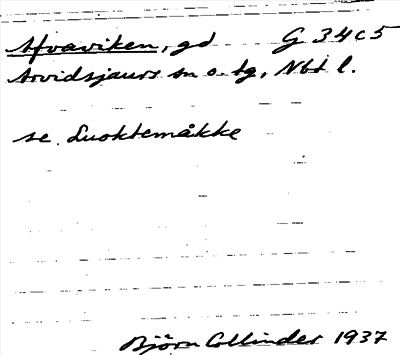 Afvaviken, gd G 34 c 5
Arvidsjaurs sn o. tg, Nbt l.
se. Luoktemåkke
Björn Collinder 1937